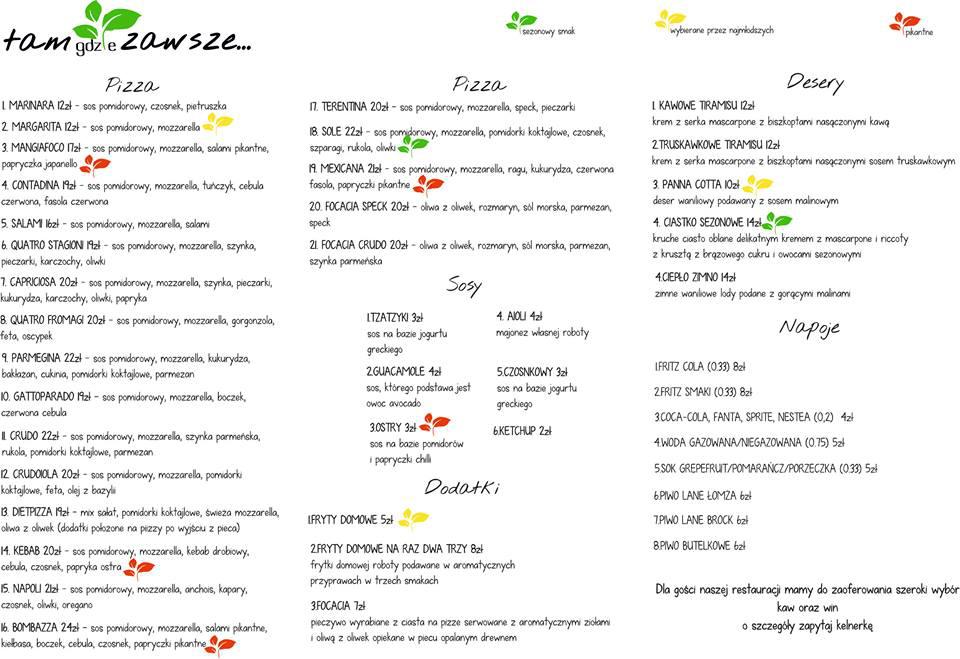 tam gdzie zawsze...
sezonowy smak
wybierane przez najmłodszych
pikantne
Pizza
1. MARINARA 12zł - sos pomidorowy, czosnek, pietruszka
2. MARGARITA 12zł - sos pomidorowy, mozzarella
3. MANGIAFOCO 17zł - sos pomidorowy, mozzarella, salami pikantne,
papryczka japanello
4. CONTADINA 19zł - sos pomidorowy, mozzarella, tuńczyk, cebula
czerwona, fasola czerwona
5. SALAMI 16zł - sos pomidorowy, mozzarella, salami
6. QUATRO STAGIONI 19zł - sos pomidorowy, mozzarella, szynka,
pieczarki, karczochy, oliwki
7. CAPRICIOSA 20zł - sos pomidorowy, mozzarella, szynka, pieczarki,
kukurydza, karczochy, oliwki, papryka
8. QUATRO FROMAGI 20zł - sos pomidorowy, mozzarella, gorgonzola,
feta, oscypek
9. PARMEGINA 22zł - sos pomidorowy, mozzarella, kukurydza,
bakłażan, cukinia, pomidorki koktajlowe, parmezan
10. GATTOPARADO 19zł - sos pomidorowy, mozzarella, boczek,
czerwona cebula
11. CRUDO 22zł - sos pomidorowy, mozzarella, szynka parmeńska,
rukola, pomidorki koktajlowe, parmezan
12. CRUDOIOLA 20zł - sos pomidorowy, mozzarella, pomidorki
koktajlowe, feta, olej z bazylii
13. DIETPIZZA 19zł - mix sałat, pomidorki koktajlowe, świeża mozzarella,
oliwa z oliwek (dodatki położone na pizzy po wyjściu z pieca)
14. KEBAB 20zł - sos pomidorowy, mozzarella, kebab drobiowy,
cebula, czosnek, papryka ostra
15. NAPOLI 21zł - sos pomidorowy, mozzarella, anchois, kapary,
czosnek, oliwki, oregano
16. BOMBAZZA 24zł - sos pomidorowy, mozzarella, salami pikantne,
kiełbasa, boczek, cebula, czosnek, papryczki pikantne
Pizza
17. TERENTINA 20zł - sos pomidorowy, mozzarella, speck, pieczarki
18. SOLE 22zł - sos pomidorowy, mozzarella, pomidorki koktajlowe, czosnek,
szparagi, rukola, oliwki
19. MEXICANA 21zł - sos pomidorowy, mozzarella, ragu, kukurydza, czerwona
fasola, papryczki pikantne
20. FOCACIA SPECK 20zł - oliwa z oliwek, rozmaryn, sól morska, parmezan,
speck
21. FOCACIA CRUDO 20zł - oliwa z oliwek, rozmaryn, sól morska, parmezan,
szynka parmeńska
Sosy
1.TZATZYKI 3zł
sos na bazie jogurtu
greckiego
2.GUACAMOLE 4zł
sos, którego podstawa jest
owoc avocado
3.OSTRY 3zł
sos na bazie pomidorów
i papryczki chilli
4. AIOLI 4zł
majonez własnej roboty
5.CZOSNKOWY 3zł
sos na bazie jogurtu
greckiego
6.KETCHUP 2zł
Dodatki
1.FRYTY DOMOWE 5zł
2.FRYTY DOMOWE NA RAZ DWA TRZY 8zł
frytki domowej roboty podawane w aromatycznych
przyprawach w trzech smakach
3.FOCACIA 7zł
pieczywo wyrabiane z ciasta na pizze serwowane z aromatycznymi ziołami
i oliwą z oliwek opiekane w piecu opalanym drewnem
Desery
1. KAWOWE TIRAMISU 12zł
krem z serka mascarpone z biszkoptami nasączonymi kawą
2.TRUSKAWKOWE TIRAMISU 12zł
krem z serka mascarpone z biszkoptami nasączonymi sosem truskawkowym
3. PANNA COTTA 10zł
deser waniliowy podawany z sosem malinowym
4. CIASTKO SEZONOWE 14zł
kruche ciasto oblane delikatnym kremem z mascarpone i riccoty
z krusztą z brązowego cukru i owocami sezonowymi
4.CIEPŁO ZIMNO 14zł
zimne waniliowe lody podane z gorącymi malinami
Napoje
1.FRITZ COLA (0.33) 8zł
2.FRITZ SMAKI (0.33) 8zł
3.COCA-COLA, FANTA, SPRITE, NESTEA (0,2) 4zł
4.WODA GAZOWANA/NIEGAZOWANA (0.75) 5zł
5.SOK GREPEFRUIT/POMARAŃCZ/PORZECZKA (0.33) 5zł
6.PIWO LANE ŁOMZA 6zł
7.PIWO LANE BROCK 6zł
8.PIWO BUTELKOWE 6zł
Dla gości naszej restauracji mamy do zaoferowania szeroki wybór
kaw oraz win
o szczegóły zapytaj kelnerkę